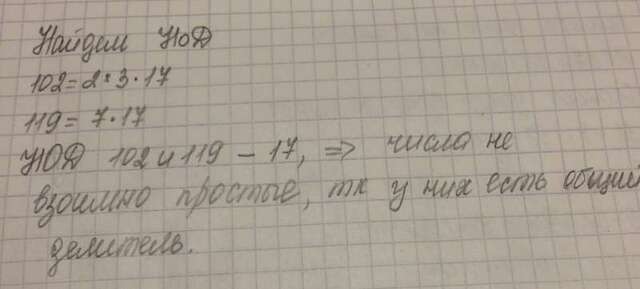 Найдем НоД
102=2·3·17
119=7·17
НОД 102 и 119 – 17, => числа не
взоимно простые, тк у них есть общий
делитель.